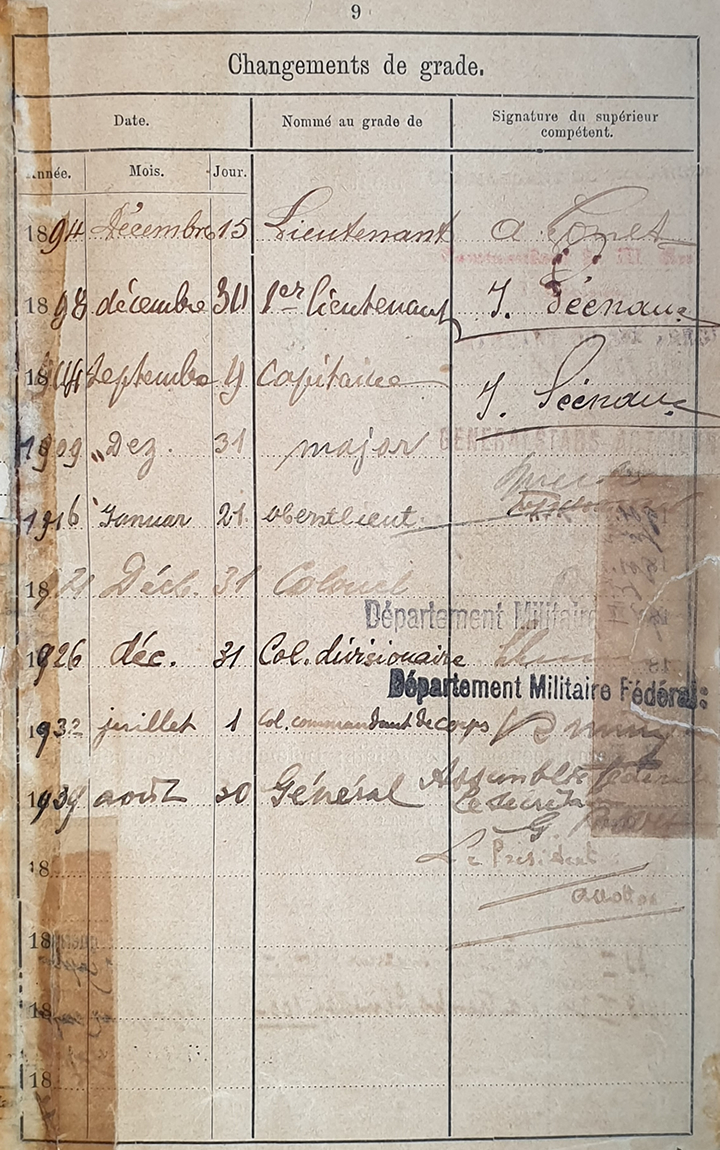 9
Changements de grade.
Date. Nommé au grade de Signature du supérieur compétent.
Année. Mois. Jour.
1894 Décembre 15 Lieutenant
1898 décembre 30 1er lieutenant J.
septembre 9 Capitaine J.
GENERALSTABS-ABTEILUNG
1909 Dez. 31 major
1916 Januar 21 oberstlieut.
1921 Déc. 31 Colonel
Département Militaire
1926 déc. 31 Col. divisionaire
Département Militaire Fédéral:
1932 juillet 1 Col. commandant de corps
1939 août 30 Général Assemblée fédérale
Le secrétaire
G. Bovet
Le Président
18
18
18
18